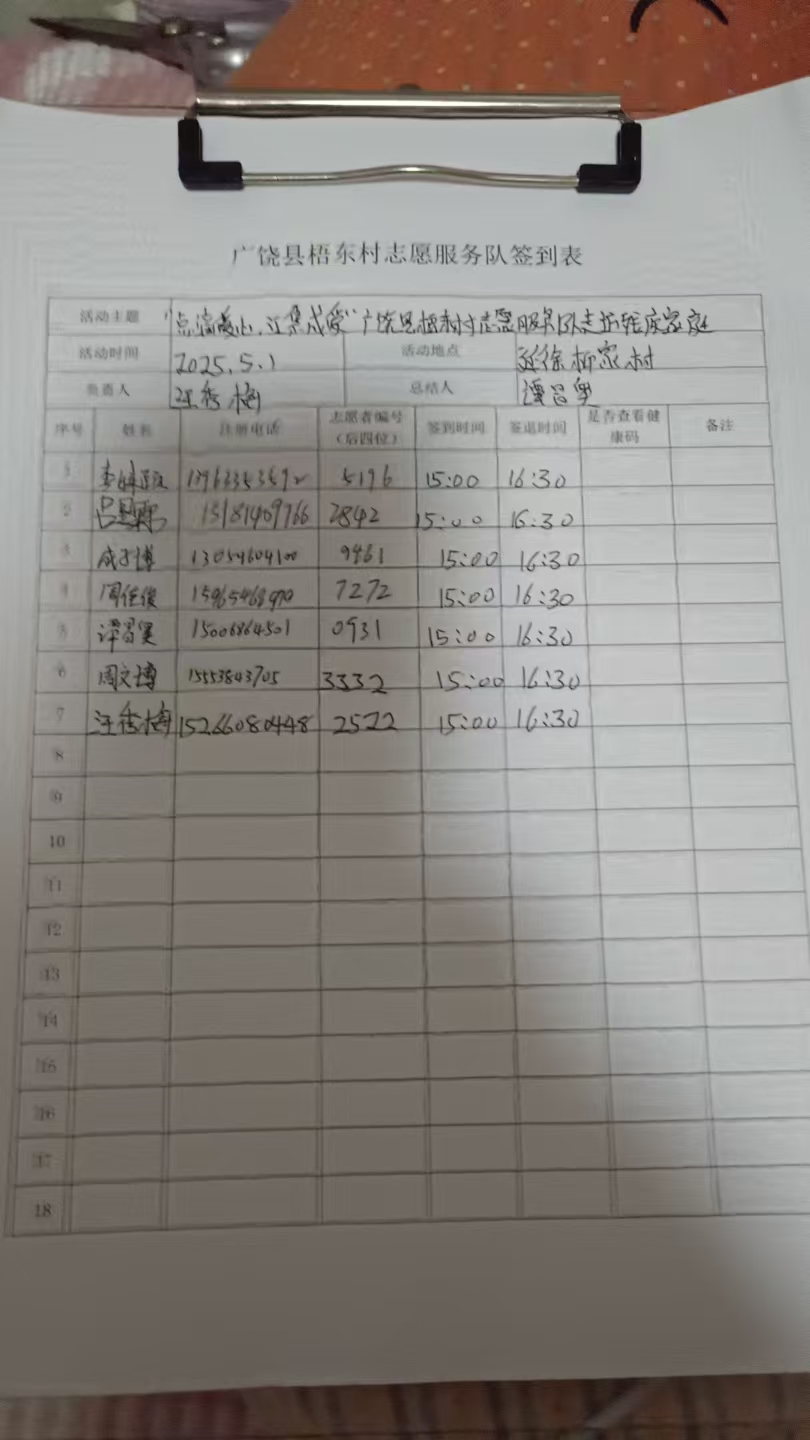 广饶县梧东村志愿服务队签到表
活动主题 "点滴暖心,汇集成爱"广饶县梧村志愿服务队走访在庭家庭
活动时间 2025.5.1 活动地点 延徐柳家村
负责人 汪秀梅 总结人 谭昌奥
序号 姓名 注册电话 志愿者编号(后四位) 签到时间 签退时间 是否查看健康码 备注
1 5196 15:00 16:30
2 13181409766 2842 15:00 16:30
3 成子博 13054604100 9461 15:00 16:30
4 周佳俊 7272 15:00 16:30
5 谭昌奥 15006864501 0931 15:00 16:30
6 周文博 15553843705 3332 15:00 16:30
7 汪秀梅 15266080448 2522 15:00 16:30
8
9
10
11
12
13
14
15
16
17
18